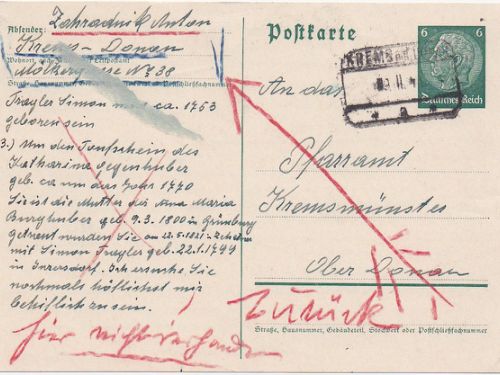 Absender: Zahradnik Anton
Krems-Donau
Wohnort, auch Zustell- od. Leitpostamt
Nr. 38
Straße, Hausnummer, Gebäudeteil, Stockwerk oder Postschließfachnummer
Fragler Simon muß ca. 1763
geboren sein
3.) Um den Taufschein des
Katharina Gegenhuber
geb. ca um das Jahr 1770
Sie ist die Mutter der Ana Maria
Burghuber geb. 9.3.1800 in Grünburg
getraut wurden Sie am 22.5.1821 in
mit Simon Fragler geb. 22.1.1799
in Ich ersuche Sie
nochmals höflichst mir
behilflich zu sein.
hier nicht vorhanden
Postkarte
6 6
Deutsches Reich
KREMS
a
An das
Pfarramt
Kremsmünster
Ober Donau
Zurück
Straße, Hausnummer, Gebäudeteil, Stockwerk oder Postschließfachnummer